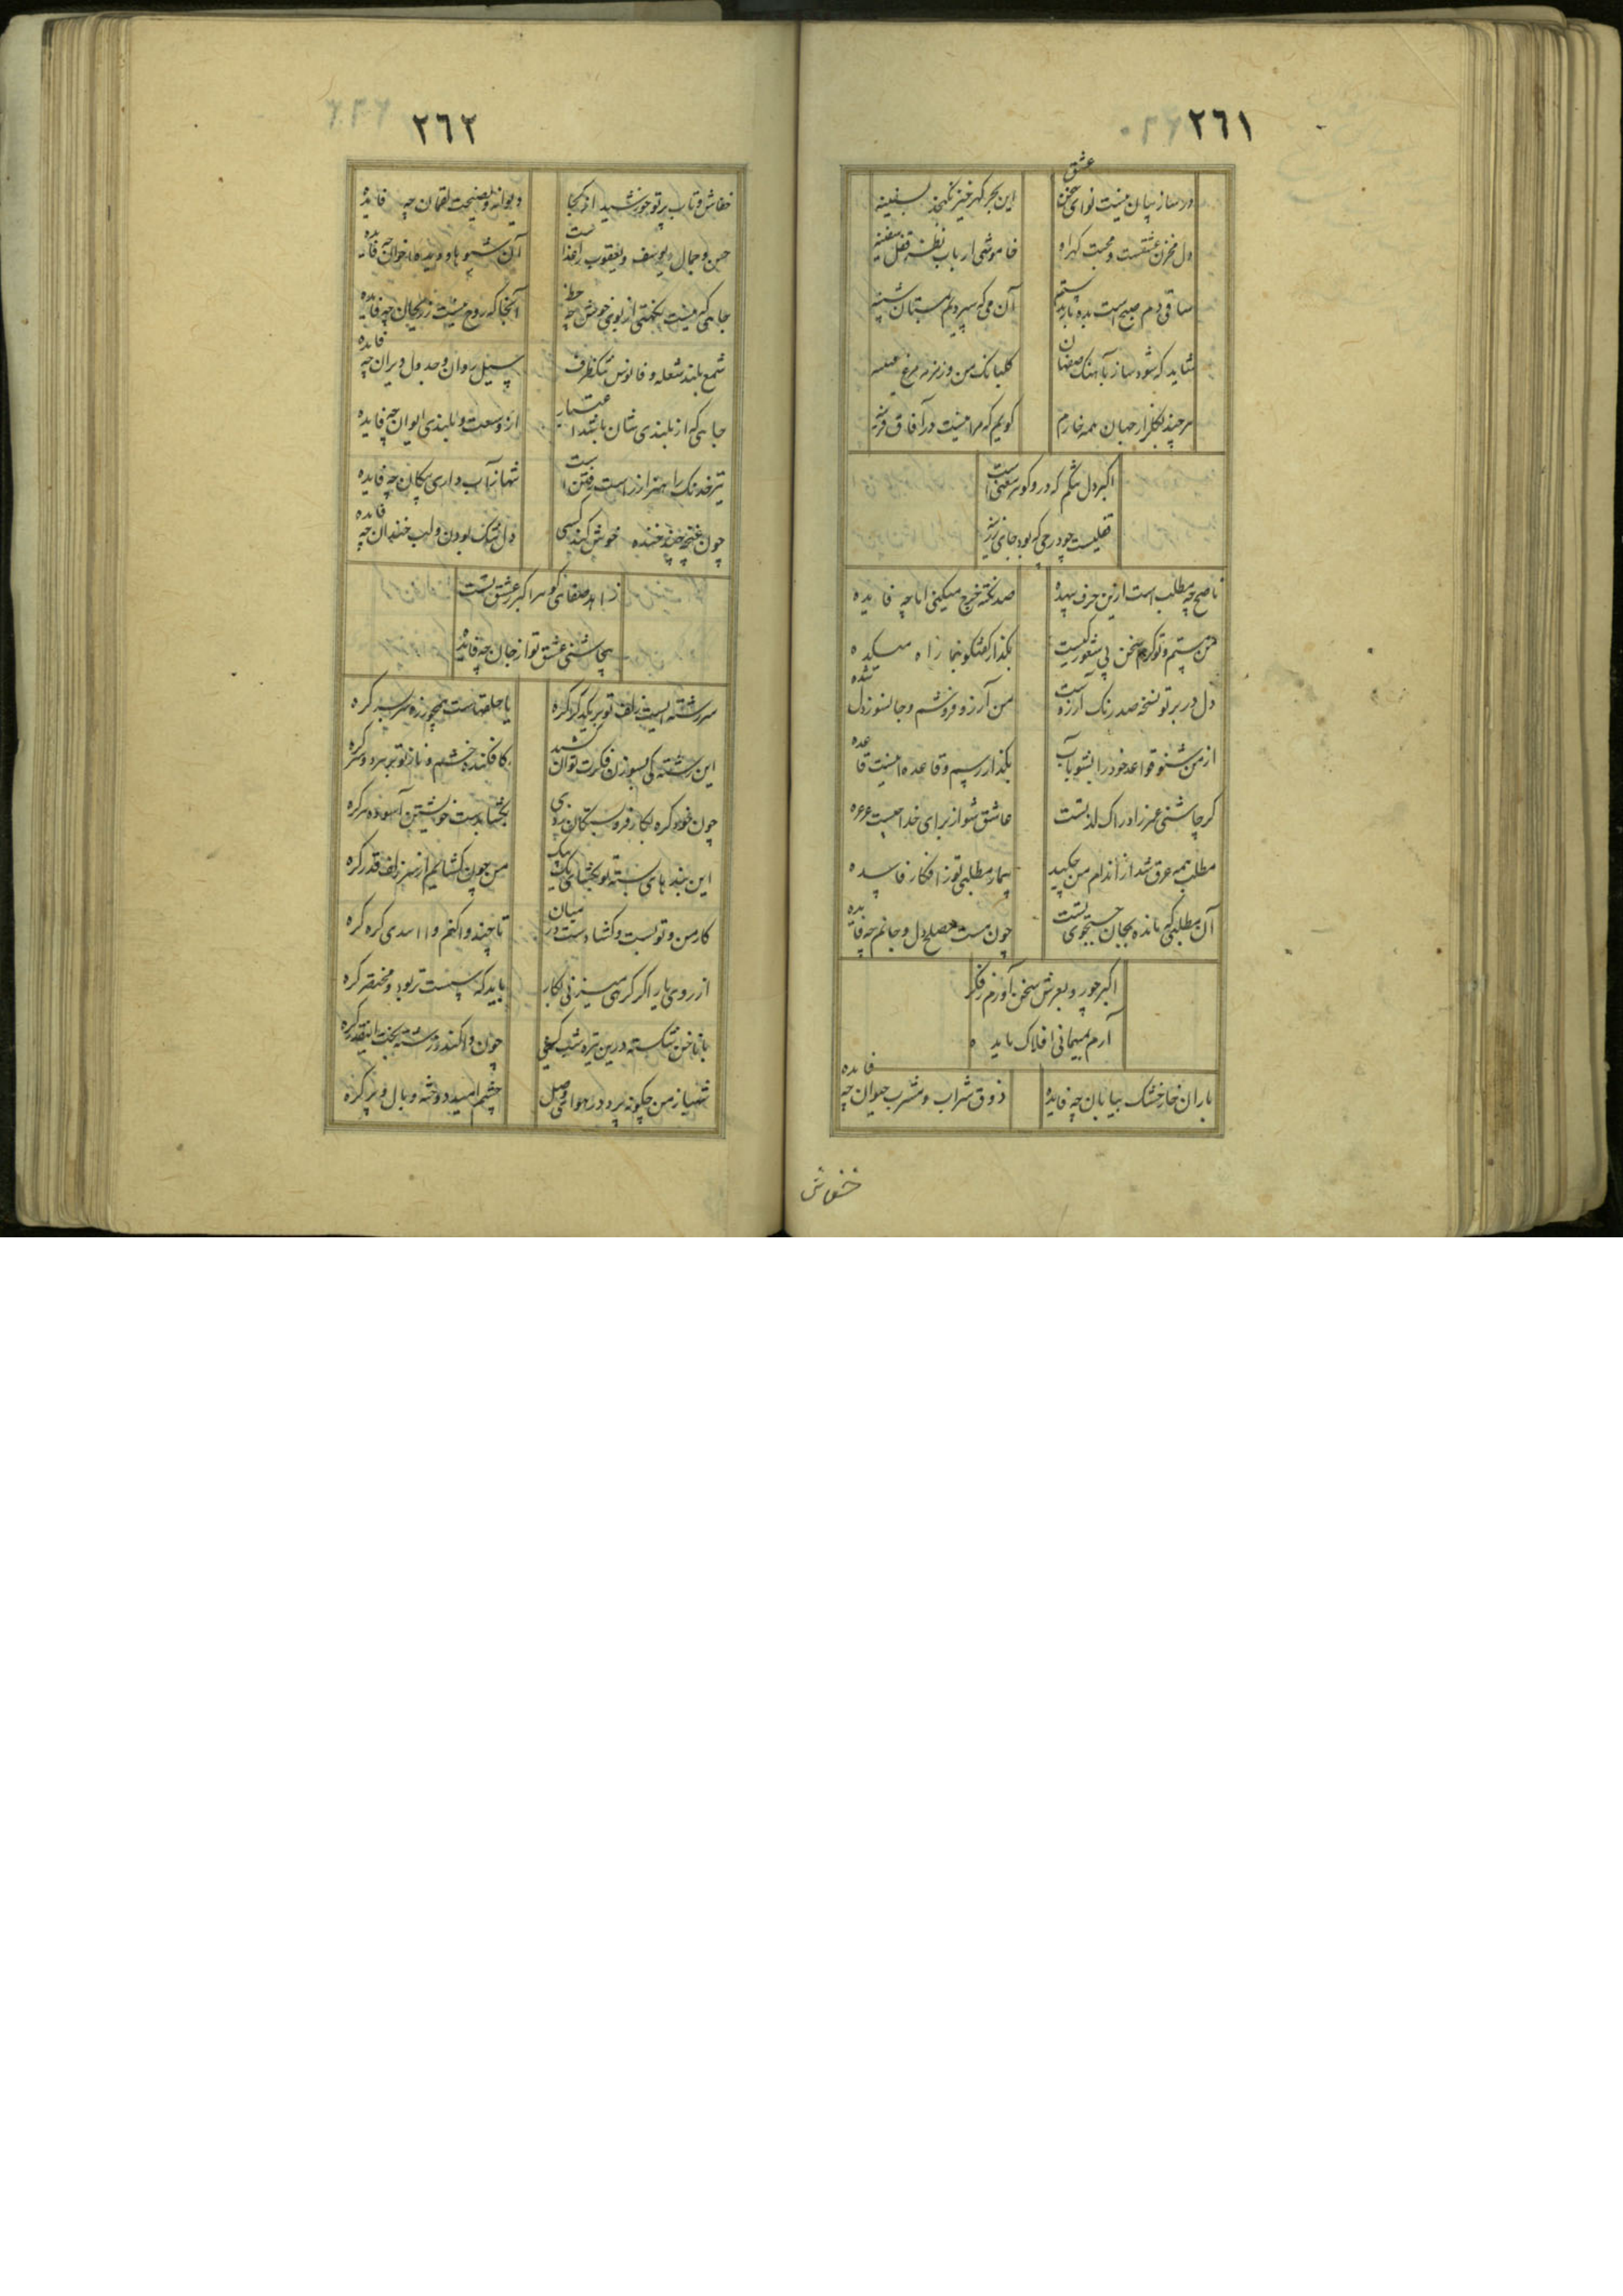 ٢٦١
در ساز بیان نیست نوای سخن عشق
این بحر گهرخیز نگنجد بسفینه
دل مخزن عشقست و محبت گهر او
خاموشی ارباب نظر قفل
ساقی دم صبح است بده باده
آن می که سپردیم بمستان شبینه
شاید که شود ساز بآهنک صفاهان
گلبانک من و زمزمه مرغ
هرچند بگلزار جهان همه خارم
گویم که مرا نیست در آفاق قرینه
اکبر دل که درو گوهر معنی است
چو درجی که بود جای
ناصح چه مطلب است ازین حرف بیهده
صد نکته خرج میکنی اما چه فایده
من مستم و تو کرم سخن بی شعور کیست
بگذار گفتگو بنما راه میکده
دل در بر تو نسخه صد رنک آرزوست
من آرزو فروشم و جانسوز دل شده
از من شنو قواعد خود را بشو بآب
بگذار رسم و قاعده نیست قاعده
گر چاشنی ادراک لذتست
عاشق شو از برای خدا
مطلب همه عرق شد از اندام من چکید
بیمار مطلبی تو ز افکار فاسده
آن مطلبی که مانده بجان جستجوی تست
چون مست مصلح دل و جانم چه فایده
اکبر چو رو بعرش سخن آورم ز فکر
آرم بمیهمانی افلاک مایده
باران خار خشک بیابان چه فایده
ذوق شراب و مشرب حیوان چه فایده
خفاش
٢٦٢
خفاش و تاب پرتو خورشید از کجا
دیوانه و نصیحت لقمان چه فایده
حسن و جمال یوسف و یعقوب را غذاست
آن شیوها و دیده اخوان چه فایده
جائی که نیست نکهتی از بوی خوش چه حظ
آنجا که روح نیست ز ریحان چه فایده
شمع بلند شعله و فانوس تنکظرف
سیل روان و جدول ویران چه فایده
جائی که از بلندی شان اعتبار
از وسعت و بلندی ایوان چه فایده
تیر خدنک را هنر از راست رفتن است
تنها بآب داری پیکان چه فایده
چون غنچه چند خنده خموش کند کسی
دل تنک بودن و لب خندان چه فایده
زاهد صفا اکبر ز عشق تست
بیچاشنی عشق تو از جان چه فایده
سررشته ایست زلف تو بر یکدگر گره
یا حلقهاست همچو زره سر بسر گره
این رشته کی بسوزن فکرت توان کشید
کافکنده خشم و ناز تو بر هر دو سر گره
چون خود گره بکار فروبستگان زدی
بگشا بدست خویشتن آسوده هر گره
این بندهای بسته تو بگشای یک بیک
من چون گشایم از سر زلف قدر گره
کار من و تو بست و گشاد است در میان
تا چند واکنم و گره گره
از روی یار اگر گرهی میزنی بکار
باید که سست تر بود و مختصر گره
با ناخن شکسته درین تیره شب کسی
چون واکند ز رشته بخت اینقدر گره
شهباز من چگونه پرد در هوای وصل
چشم امید دوخته و بال و پر گره